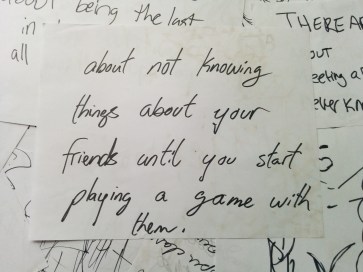 being the last
in
all
about not knowing
things about your
friends until you start
playing a game with
them.
THERE